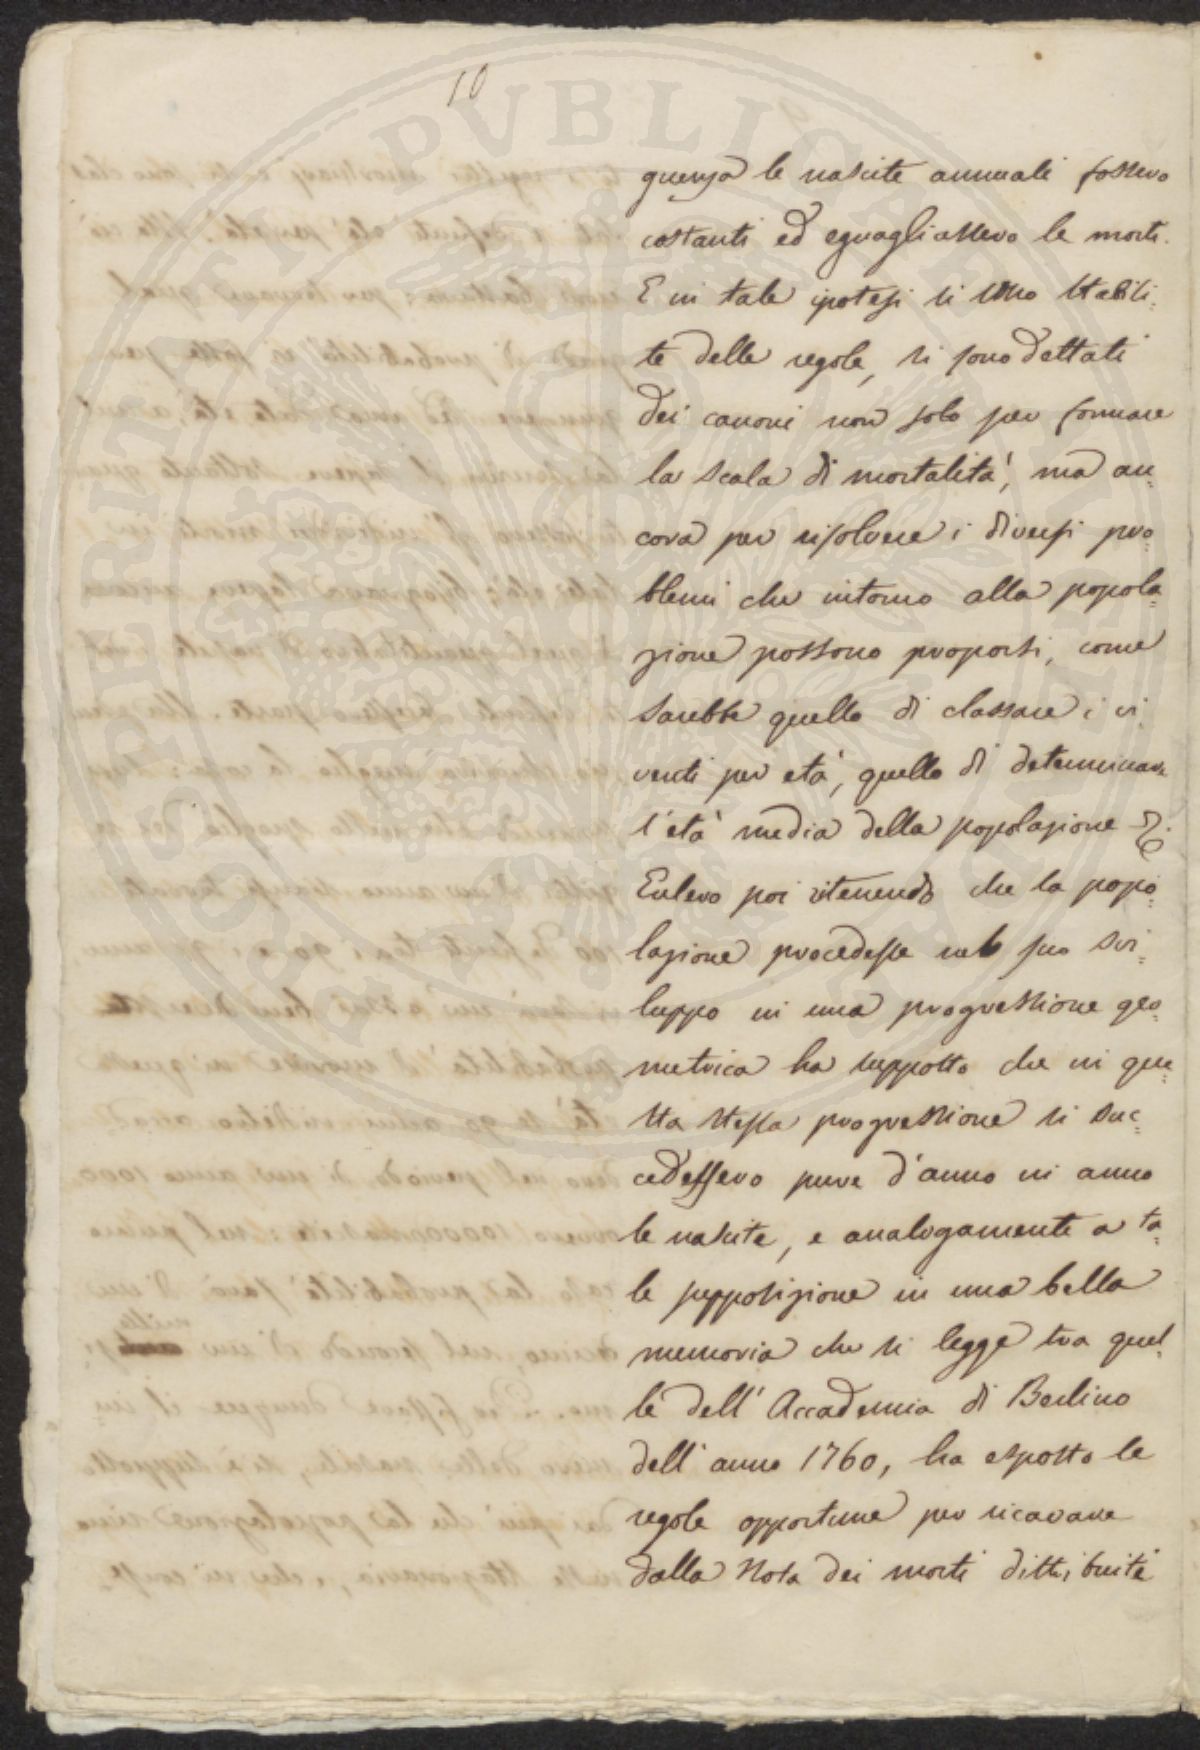 10
guenza le nascite annuali fossero
costanti ed eguagliassero le morti.
E in tale ipotesi si sono stabili-
te delle regole, si sono dettati
dei canoni non solo per formare
la scala di mortalità, ma an-
cora per risolvere i diversi pro-
blemi che intorno alla popola-
zione possono proporsi, come
sarebbe quello di classare i vi-
venti per età, quello di determinare
l'età media della popolazione &c.
Eulero poi ritenendo che la popo-
lazione procedesse nel suo svi-
luppo in una progressione geo-
metrica ha supposto che in que-
sta stessa progressione si suc-
cedessero pure d'anno in anno
le nascite, e analogamente a ta-
le supposizione in una bella
memoria che si legge tra quel-
le dell'Accademia di Berlino
dell'anno 1760, ha esposto le
regole opportune per ricavare
dalla Nota dei morti distribuiti